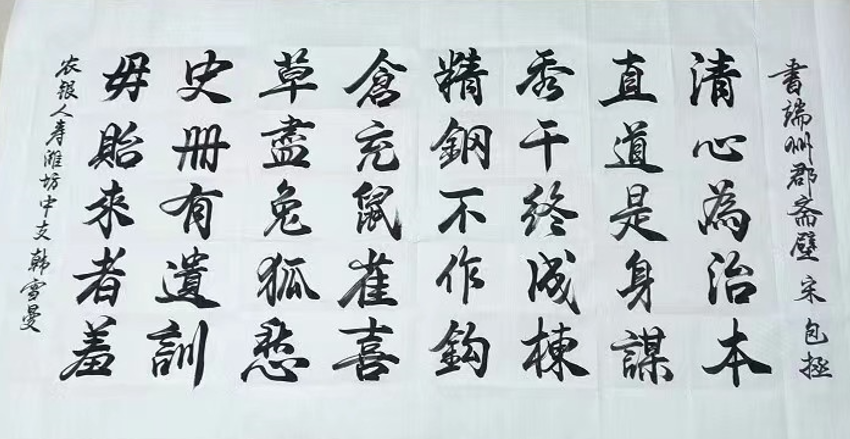 书端州郡斋壁 宋 包拯
清心为治本
直道是身謀
秀干终成棟
精鋼不作鈎
倉充鼠雀喜
草盡兔狐愁
史册有遺訓
毋貽来者羞
农银人寿潍坊中支 韩雪曼